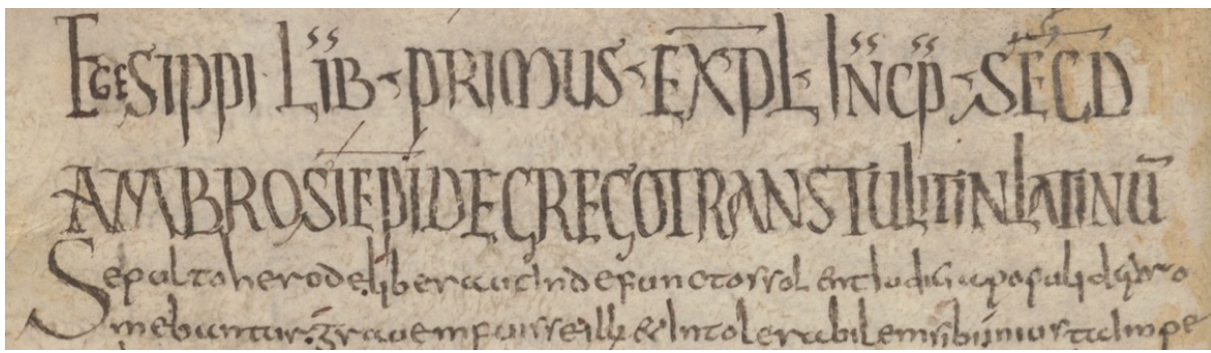 EGESIPPI LIB PRIMUS EXPL INCP SECD
AMBROSI EPI DE GRECO TRANSTULIT IN LATINU
Sepulto herode liberauit in defunctos sol
mebantur grauem fuisse illu & intolerabilem sibi